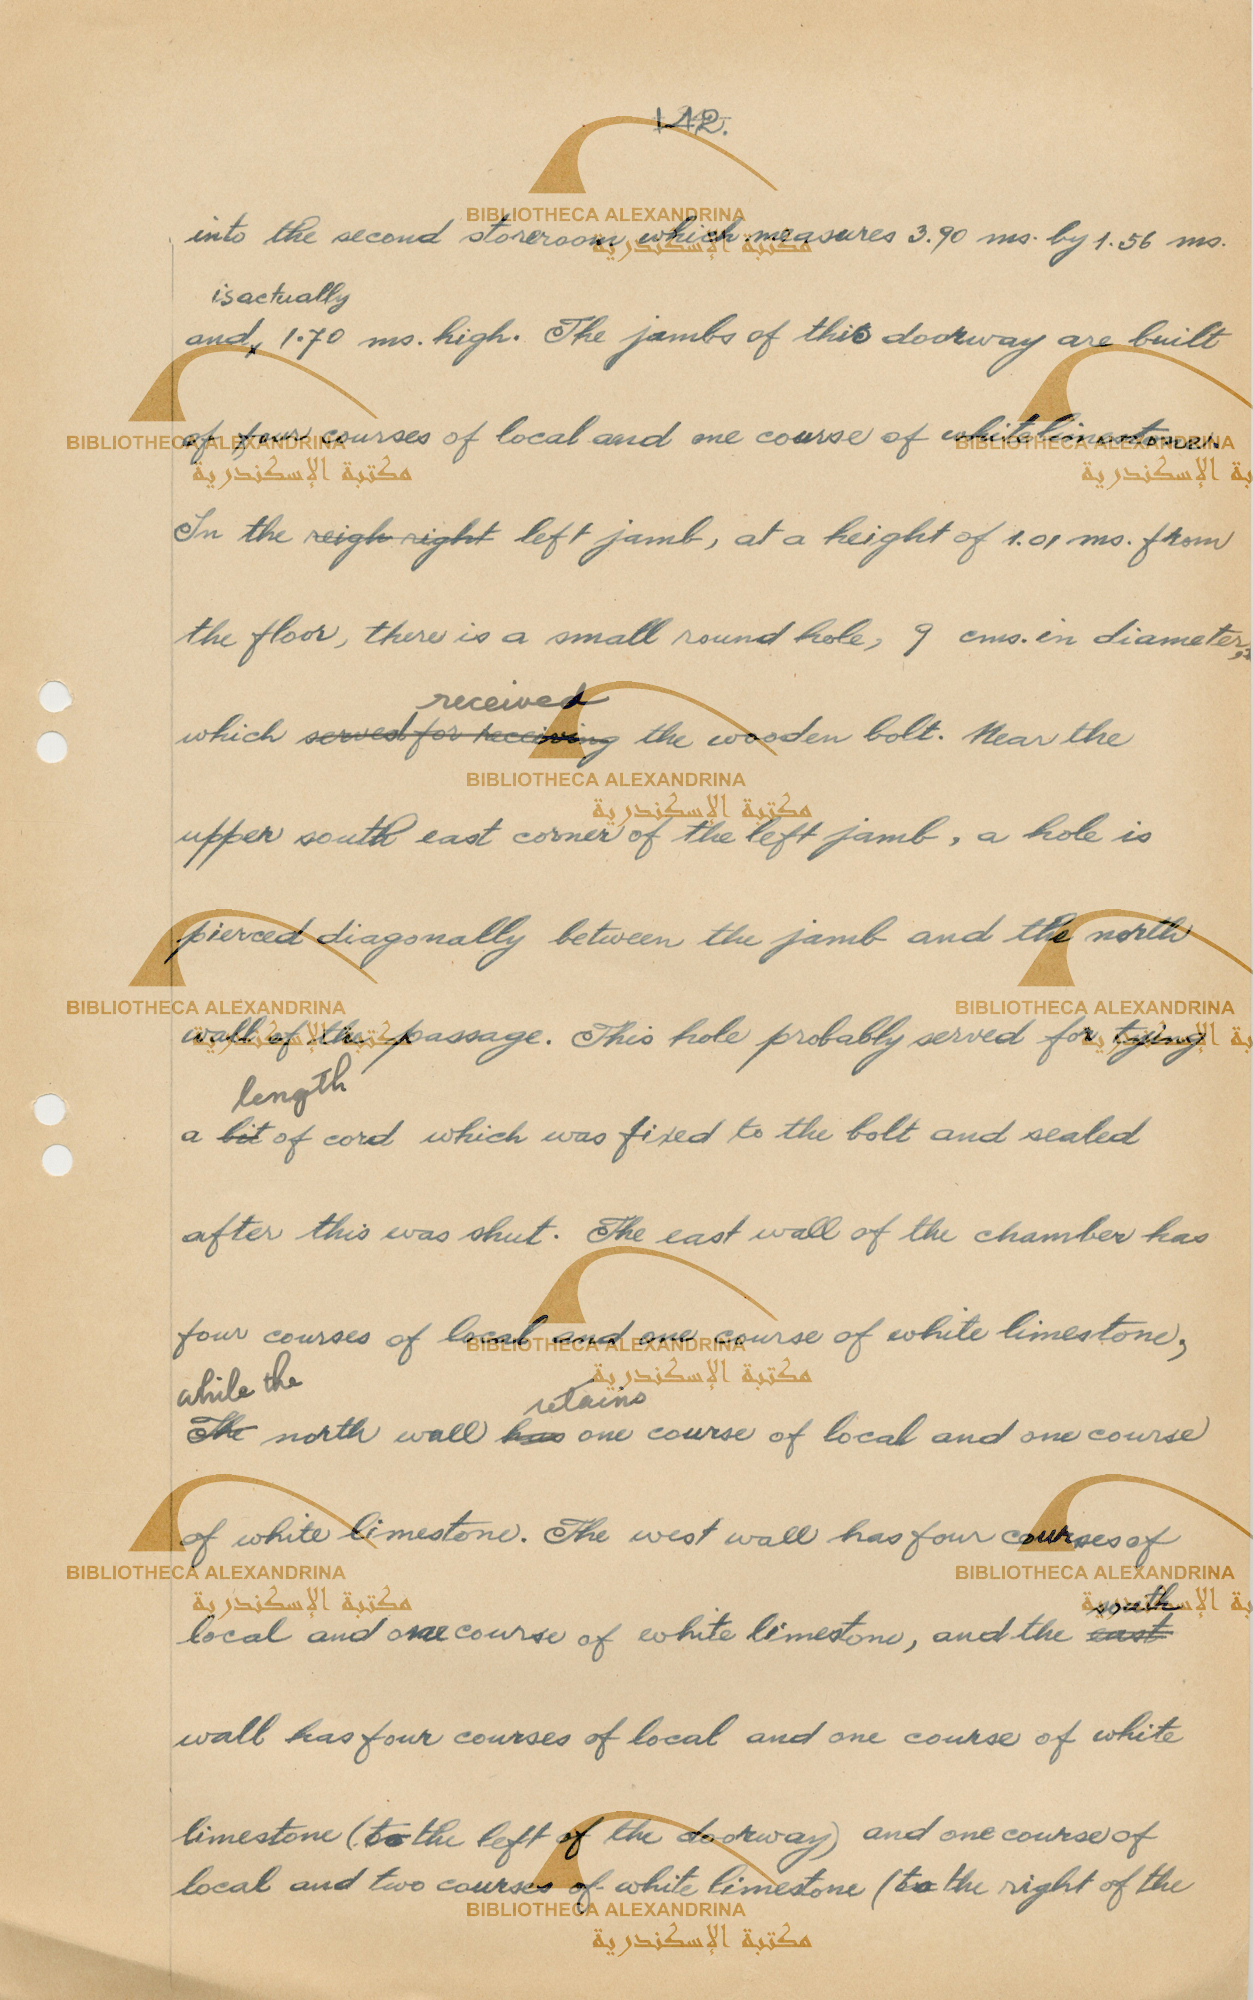 142.
into the second storeroom which measures 3.90 ms. by 1.56 ms.
is actually
and, 1.70 ms. high. The jambs of this doorway are built
of four courses of local and one course of white limestone
In the reigh right left jamb, at a height of 1.01 ms. from
the floor, there is a small round hole, 9 cms. in diameter,
received
which served for receiving the wooden bolt. Near the
upper south east corner of the left jamb, a hole is
pierced diagonally between the jamb and the north
wall of the passage. This hole probably served for tying
length
a bit of cord which was fixed to the bolt and sealed
after this was shut. The east wall of the chamber has
four courses of local and one course of white limestone,
while the
retains
The north wall has one course of local and one course
of white limestone. The west wall has four courses of
south
local and one course of white limestone, and the east
wall has four courses of local and one course of white
limestone (to the left of the doorway) and one course of
local and two courses of white limestone (to the right of the
BIBLIOTHECA ALEXANDRINA
مكتبة الإسكندرية